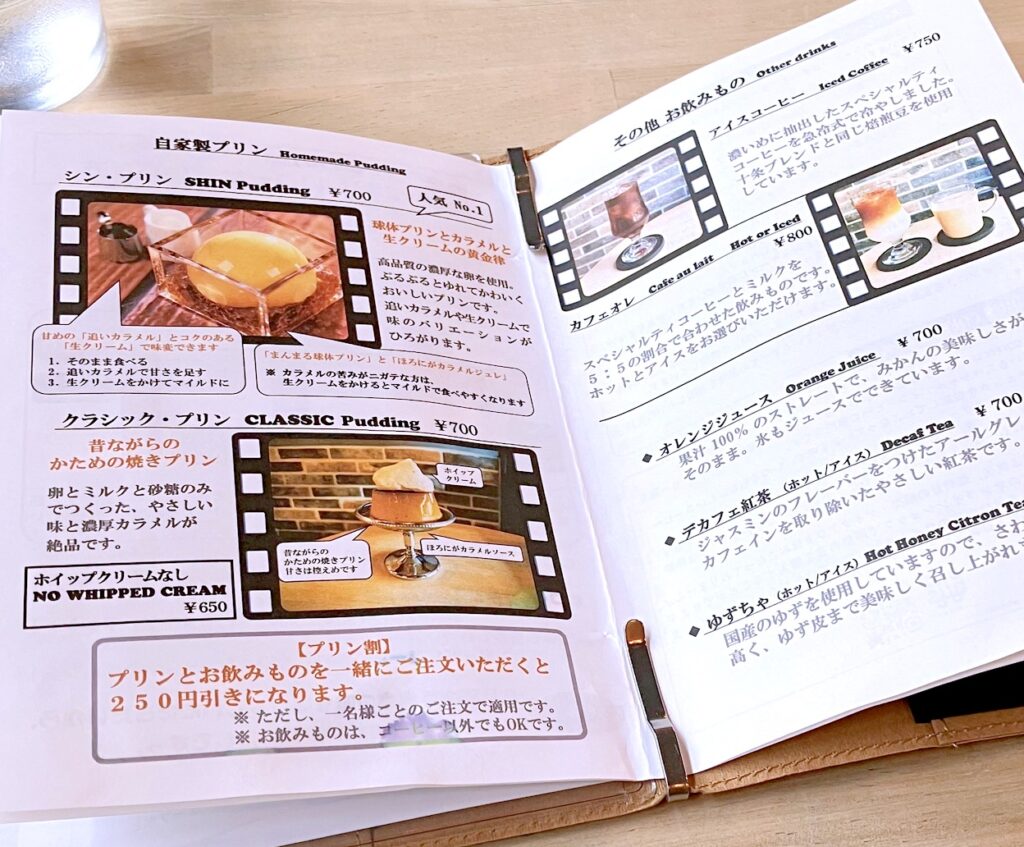 自家製プリン Homemade Pudding
シン・プリン SHIN Pudding ¥700
人気 No.1
球体プリンとカラメルと
生クリームの黄金律
高品質の濃厚な卵を使用。
ぷるぷるとゆれてかわいく
おいしいプリンです。
追いカラメルや生クリームで
味のバリエーションが
ひろがります。
甘めの「追いカラメル」とコクのある
「生クリーム」で味変できます
1. そのまま食べる
2. 追いカラメルで甘さを足す
3. 生クリームをかけてマイルドに
「まんまる球体プリン」と「ほろにがカラメルジュレ」
※ カラメルの苦みがニガテな方は、
生クリームをかけるとマイルドで食べやすくなります
クラシック・プリン CLASSIC Pudding ¥700
昔ながらの
かための焼きプリン
卵とミルクと砂糖のみ
でつくった、やさしい
味と濃厚カラメルが
絶品です。
ホイップ
クリーム
昔ながらの
かための焼きプリン
甘さは控えめです
ほろにがカラメルソース
ホイップクリームなし
NO WHIPPED CREAM
¥650
【プリン割】
プリンとお飲みものを一緒にご注文いただくと
250円引きになります。
※ ただし、一名様ごとのご注文で適用です。
※ お飲みものは、コーヒー以外でもOKです。
その他 お飲みもの Other drinks
アイスコーヒー Iced Coffee ¥750
濃いめに抽出したスペシャルティ
コーヒーを急冷式で冷やしました。
十条ブレンドと同じ焙煎豆を使用
しています。
カフェオレ Cafe au lait Hot or Iced
¥800
スペシャルティコーヒーとミルクを
5:5の割合で合わせた飲みものです。
ホットとアイスをお選びいただけます。
◆ オレンジジュース Orange Juice ¥700
果汁100%のストレートで、みかんの美味しさが
そのまま。氷もジュースでできています。
◆ デカフェ紅茶 (ホット/アイス) Decaf Tea ¥700
ジャスミンのフレーバーをつけたアールグレ
カフェインを取り除いたやさしい紅茶です。
◆ ゆずちゃ (ホット/アイス) Hot Honey Citron Tea
国産のゆずを使用していますので、さわ
高く、ゆず皮まで美味しく召し上がれま